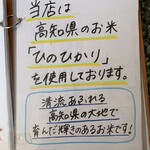 当店は
高知県のお米
「ひのひかり」
を使用しております。
清流あふれる
高知県の大地で
育んだ輝きのあるお米です!